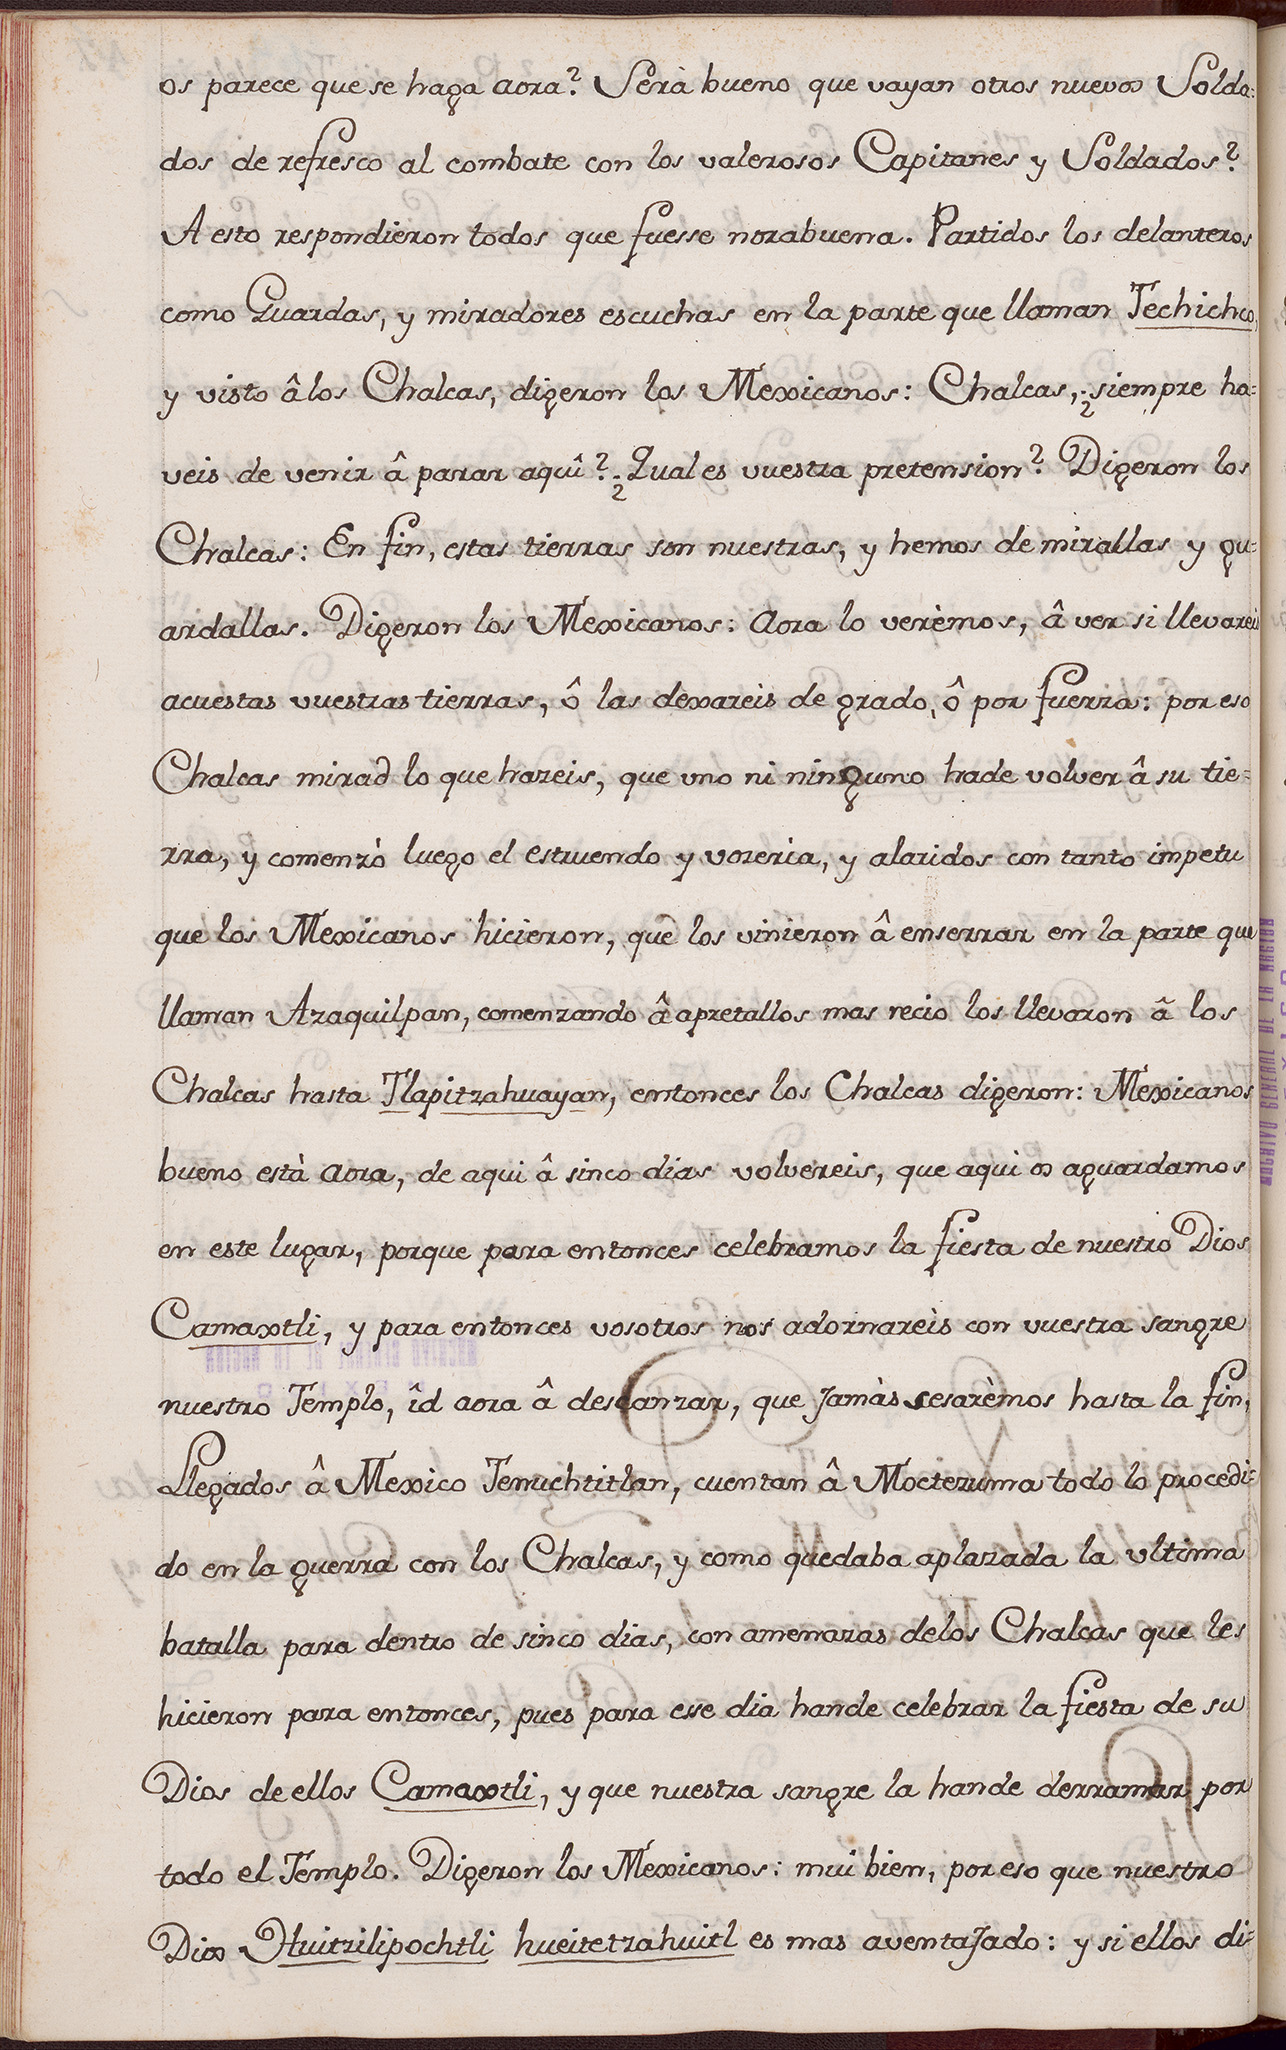 os parece que se haga aora? Serà bueno que vayan otros nuevos Solda=
dos de refresco al combate con los valerosos Capitanes y Soldados?
A esto respondieron todos que fuesse norabuena. Partidos los delanteros
como Guardas, y miradores escuchas en la parte que llaman Techichco,
y visto â los Chalcas, digeron los Mexicanos: Chalcas, ¿siempre ha=
veis de venir â parar aquî? ¿Qual es vuestra pretension? Digeron los
Chalcas: En fin, estas tierras son nuestras, y hemos de mirallas y gu=
ardallas. Digeron los Mexicanos: Aora lo verèmos, â ver si llevareis
acuestas vuestras tierras, ô las dexareis de grado, ô por fuerza: por eso
Chalcas mirad lo que hazeis, que uno ni ninguno hade volver â su tie=
rra, y comenzò luego el estruendo y vozeria, y alaridos con tanto impetu
que los Mexicanos hicieron, que los vinieron â enserrar en la parte que
llaman Azaquilpan, comenzando â apretallos mas recio los llevaron â los
Chalcas hasta Tlapitzahuayan, entonces los Chalcas digeron: Mexicanos
bueno està aora, de aqui â sinco dias volvereis, que aqui os aguardamos
en este lugar, porque para entonces celebramos la fiesta de nuestro Dios
Camaxtli, y para entonces vosotros nos adornarèis con vuestra sangre
nuestro Templo, îd aora â descanzar, que jamàs cesarèmos hasta la fin,
Llegados â Mexico Tenuchtitlan, cuentan â Moctezuma todo lo procedi=
do en la guerra con los Chalcas, y como quedaba aplazada la ultima
batalla para dentro de sinco dias, con amenazas delos Chalcas que les
hicieron para entonces, pues para esse dia hande celebrar la fiesta de su
Dios de ellos Camaxtli, y que nuestra sangre la hande derramar por
todo el Templo. Digeron los Mexicanos: mui bien, por eso que nuestro
Dios Huitzilipochtli hueitetzahuitl es mas aventajado: y si ellos di=
ARCHIVO GENERAL DE LA NACION